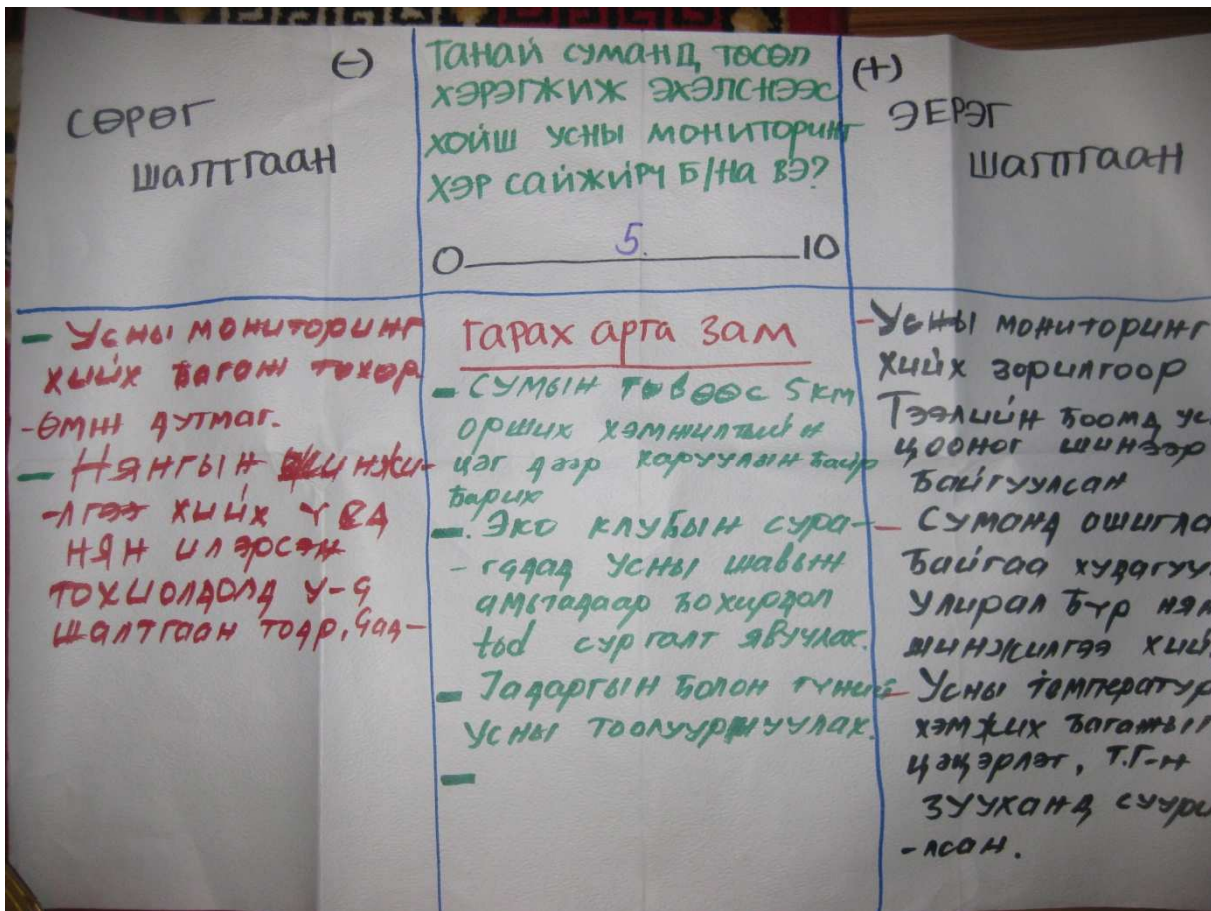 (-)
СӨРӨГ
ШАЛТГААН
ТАНАЙ СУМАНД ТӨСӨЛ
ХЭРЭГЖИЖ ЭХЭЛСНЭЭС
ХОЙШ УСНЫ МОНИТОРИНГ
ХЭР САЙЖИРЧ Б/НА ВЭ?
0 5. 10
(+)
ЭЕРЭГ
ШАЛТГААН
- Усны мониторинг
хийх багаж төхөр
-өмж дутмаг.
- Нянгын шинжи-
-лгээ хийх үед
нян илэрсэн
тохиолдолд у-д
шалтгаан тодр,
гарах арга зам
- Сумын төвөөс 5км
орших хэмжилтийн
цэг дээр харуулын байр
барих
- . Эко клубын сура-
- гчдад усны шавьж
амьтадаар бохирдол
tod сургалт явуулах.
- Гадаргын болон гүний
усны тоолууржуулах.
-
- Усны мониторинг
хийх зорилгоор
Тээлийн боомд
цооног шинээр
байгуулсан
- Суманд
байгаа
Улирал бүр
шинжилгээ
- Усны температур
хэмжих
цэцэрлэг, Т.Г-н
зууханд суури
-лсан.